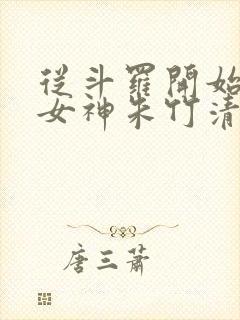 從斗羅開始
女神朱竹清
唐三蕭